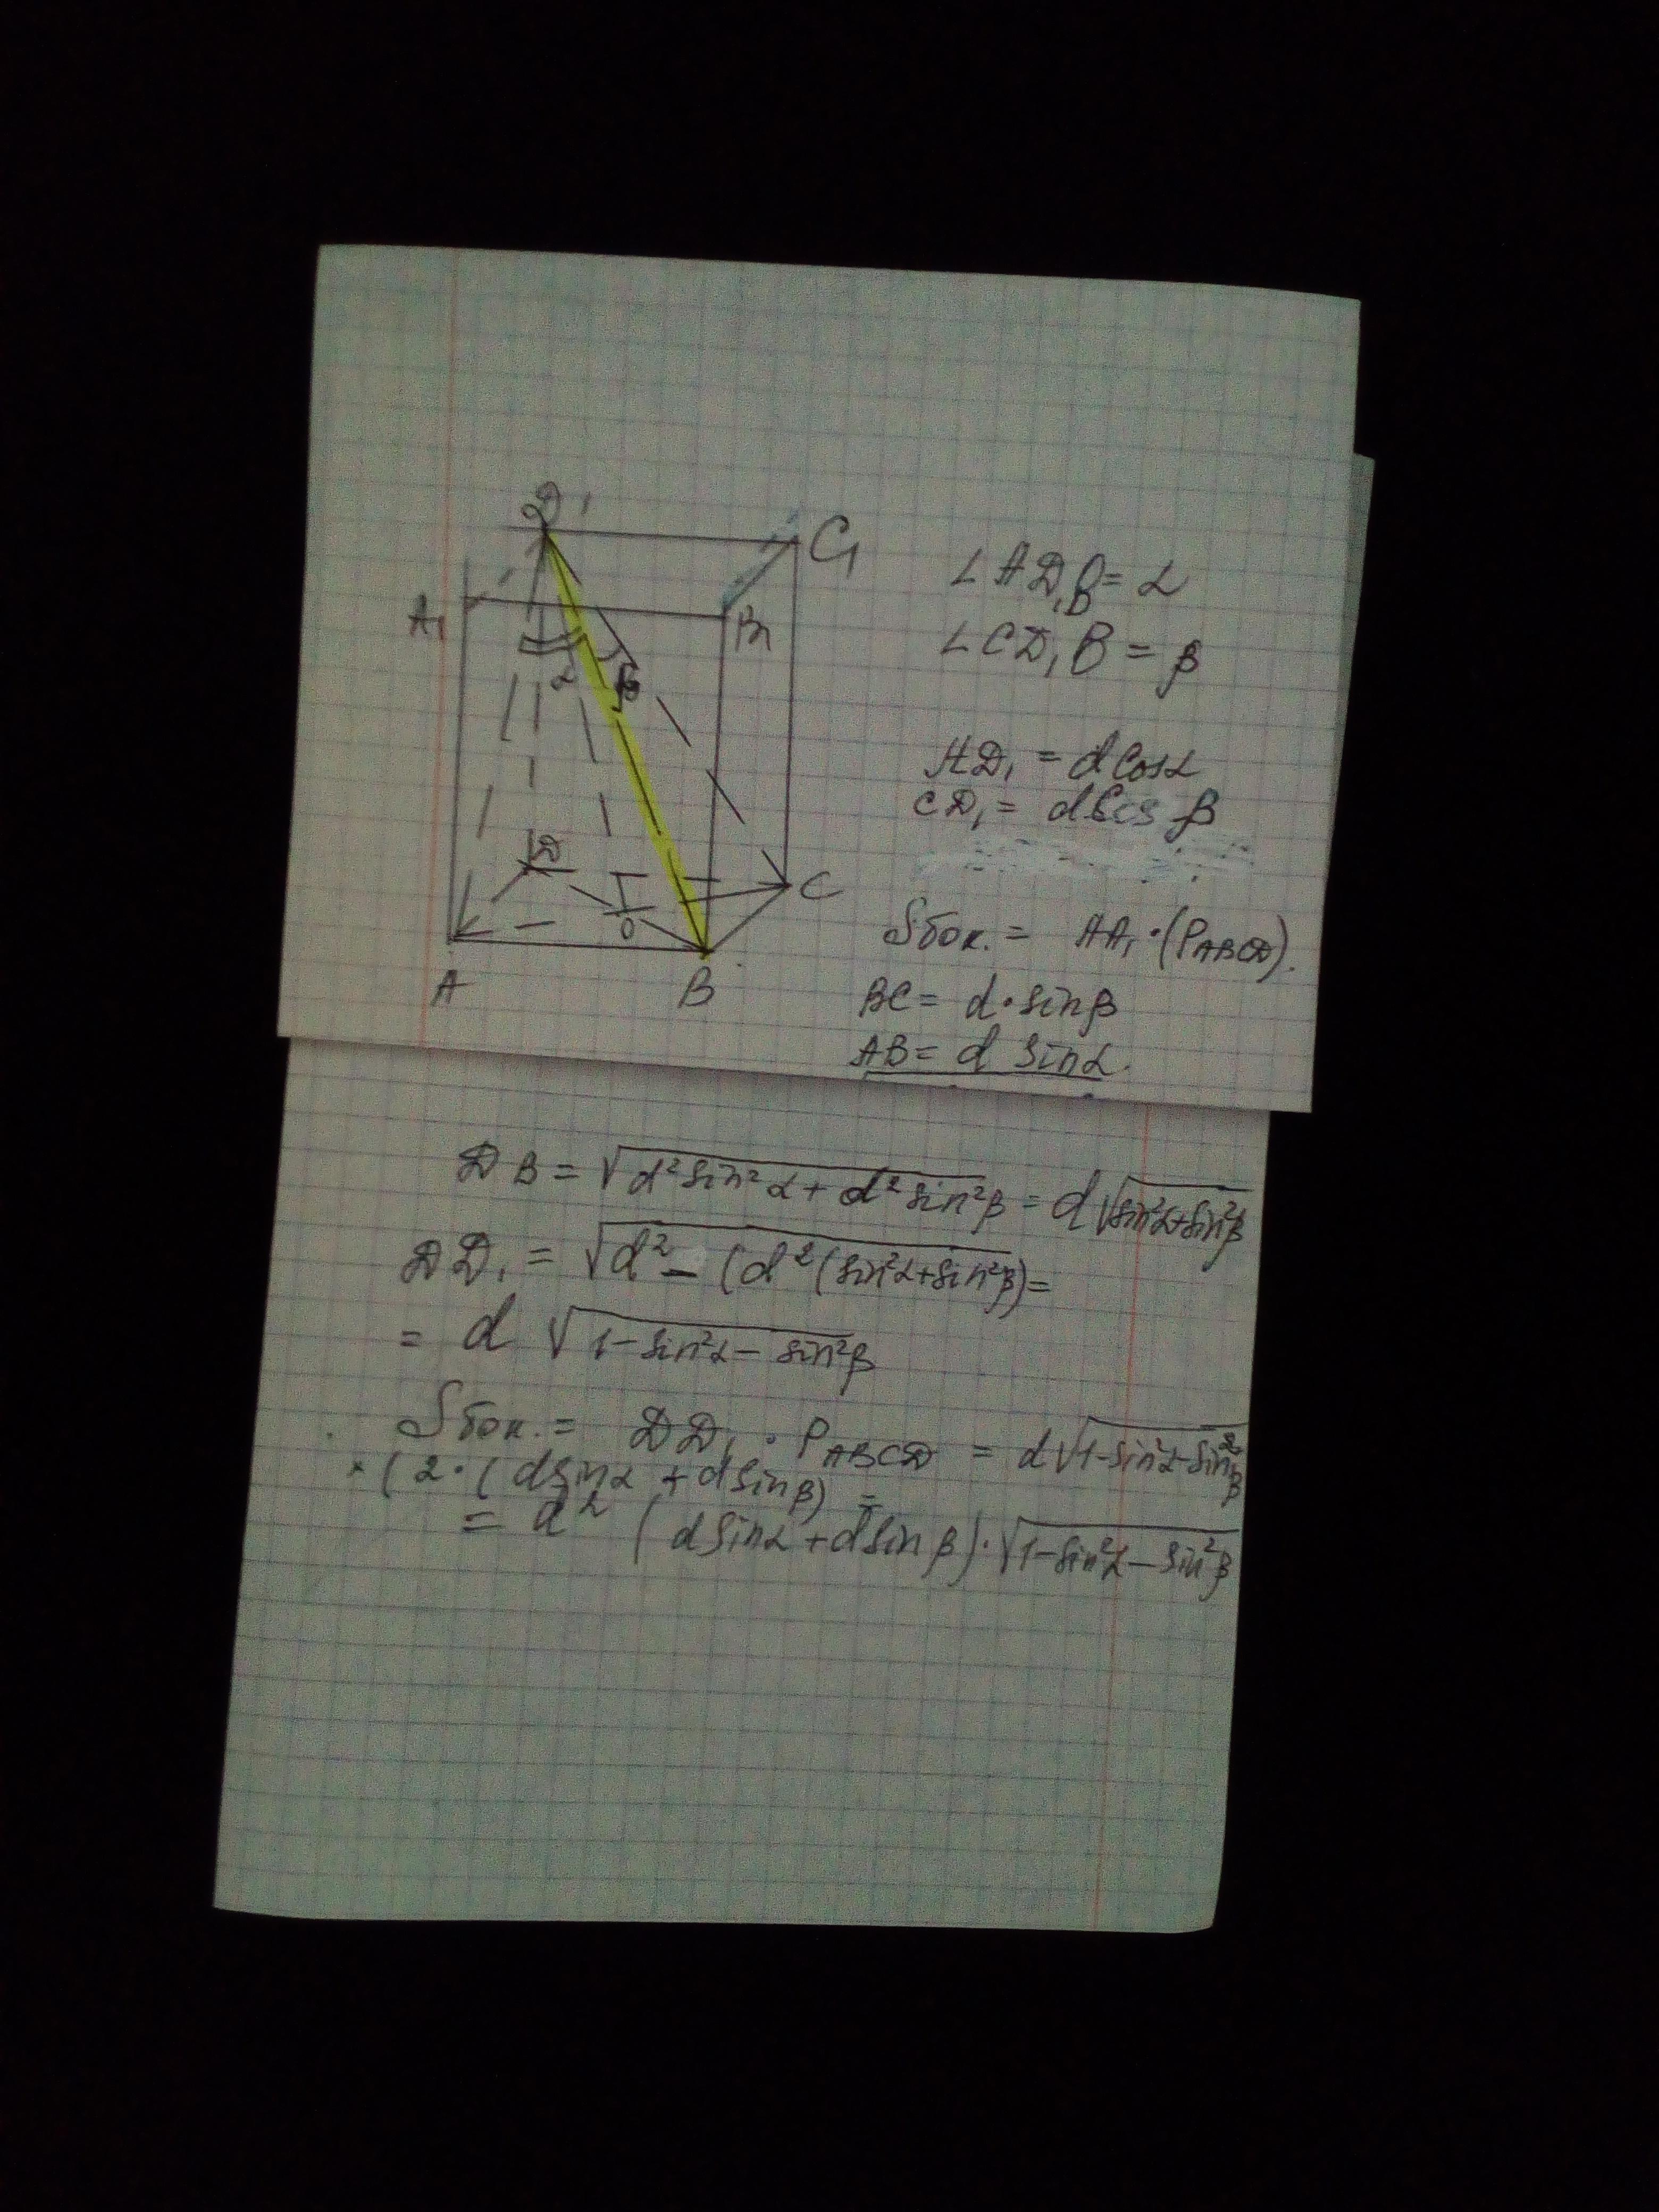 D1
C1
A1
B1
α
β
D
C
O
A
B
∠AD₁B = α
∠CD₁B = β
AD₁ = d cos α
CD₁ = d cos β
Sбок. = AA₁ · (P_ABCD).
BC = d · sin β
AB = d sin α.
DB = √(d² sin² α + d² sin² β) = d √(sin² α + sin² β)
DD₁ = √(d² − (d² (sin² α + sin² β) =
= d √(1 − sin² α − sin² β)
Sбок. = DD₁ · P_ABCD = d √(1 − sin² α − sin² β)
× (2 · (d sin α + d sin β) =
= d² (d sin α + d sin β) · √(1 − sin² α − sin² β)